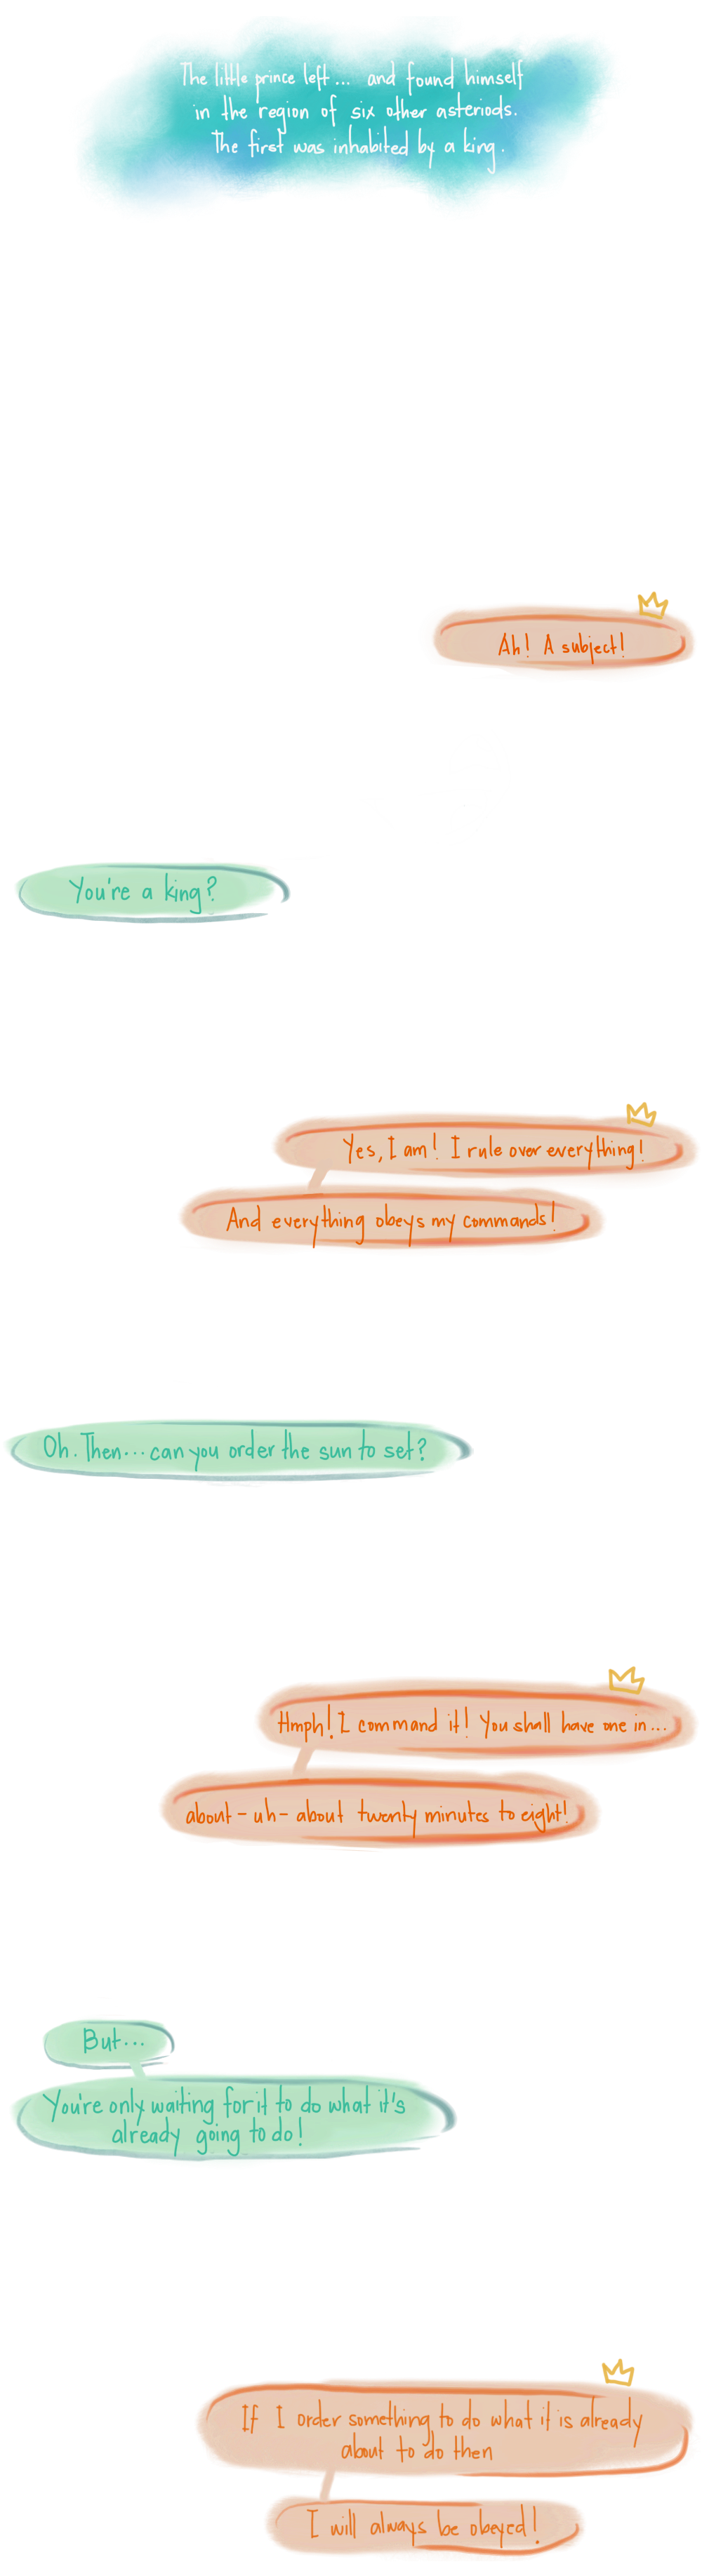 The little prince left... and found himself
in the region of six other asteriods.
The first was inhabited by a king.
Ah! A subject!
You're a king?
Yes, I am! I rule over everything!
And everything obeys my commands!
Oh. Then... can you order the sun to set?
Hmph! I command it! You shall have one in...
about - uh - about twenty minutes to eight!
But...
You're only waiting for it to do what it's
already going to do!
If I order something to do what it is already
about to do then
I will always be obeyed!